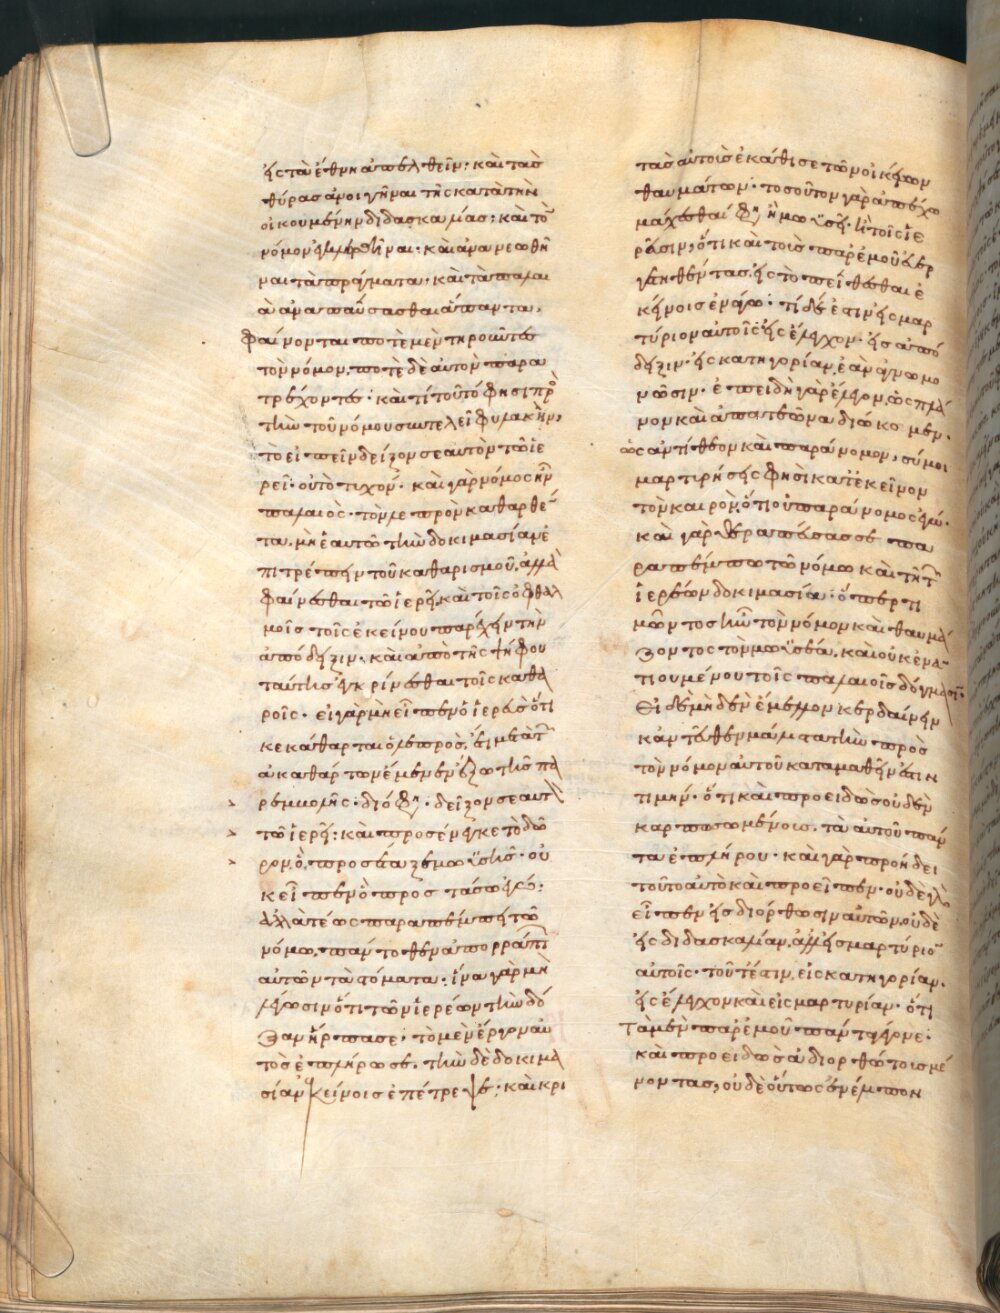 εἰς τὰ ἔθνη ἀπελθεῖν· καὶ τὰς
θύρας ἀνοιγῆναι τῆς κατὰ τὴν
οἰκουμένην διδασκαλίας· καὶ τὸν
νόμον
ναι τὰ πράγματα· καὶ τὰ παλαι
ὰ ἀναπαύσασθαι ἅπαντα,
Φαίνονται ποτὲ μὲν τηροῦντες
τὸν νόμον, ποτὲ δὲ αὐτὸν παρα
τρέχοντες· καὶ τί τοῦτό φησι πρὸς
τὴν τοῦ νόμου συντελεῖ φυλακὴν,
τὸ εἰπεῖν δεῖξον σεαυτὸν τῷ ἱε
ρεῖ· οὐ τὸ τυχόν· καὶ γὰρ νόμος ἦν
παλαιὸς· τὸν λεπρὸν καθαρθέν
τα, μὴ ἑαυτῷ τὴν δοκιμασίαν ἐ
πιτρέπειν τοῦ καθαρισμοῦ, ἀλλὰ
φαίνεσθαι τῷ ἱερεῖ, καὶ τοῖς ὀφθαλ
μοῖς τοῖς ἐκείνου παρέχειν τὴν
ἀπόδειξιν· καὶ ἀπὸ τῆς ψήφου
ταύτης ἐγκρίνεσθαι τοῖς καθα
ροῖς· εἰ γὰρ μὴ εἶπεν ὁ ἱερεὺς ὅτι
κεκάθαρται ὁ λεπρὸς, ἔτι μετὰ τῶν
ἀκαθάρτων ἔμενεν ἔξω τῆς πα
ρεμβολῆς· διό φησι· δεῖξον σεαυτὸν
τῷ ἱερεῖ· καὶ προσένεγκε τὸ δῶ
ρον, ὃ προσέταξε μωϋσῆς· οὐ
κ εἶπεν ὃ προστάσσω ἐγώ·
ἀλλὰ τέως παραπέμπει τῷ
νόμῳ, πάντοθεν ἀπορράπτων
αὐτῶν τὰ στόματα· ἵνα γὰρ μὴ
λέγωσιν ὅτι τῶν ἱερέων τὴν δό
ξαν ἥρπασε· τὸ μὲν ἔργον αὐ
τὸς ἐπλήρωσε, τὴν δὲ δοκιμα
σίαν ἐκείνοις ἐπέτρεψε· καὶ κρι
τὰς αὐτοὺς ἐκάθισε τῶν οἰκείων
θαυμάτων· τοσοῦτον γὰρ ἀπέχω
μάχεσθαί φησι ἢ μωϋσῇ· ἢ τοῖς ἱε
ρεῦσιν, ὅτι καὶ τοὺς παρ' ἐμοῦ εὐερ
γετηθέντας, εἰς τὸ πείθεσθαι ἐ
κείνοις ἐνάγω· τί δέ ἐστιν εἰς μαρ
τύριον αὐτοῖς· εἰς ἔλεγχον· εἰς ἀπό
δειξιν· εἰς κατηγορίαν, ἐὰν ἀγνωμο
νῶσιν· ἐπειδὴ γὰρ ἔλεγον, ὡς πλά
νον καὶ ἀπατεῶνα διώκομεν·
ὡς ἀντίθεον καὶ παράνομον, σύ μοι
μαρτυρήσεις φησὶ κατ' ἐκεῖνον
τὸν καιρὸν, ὅτι οὐ παράνομος ἐγώ·
καὶ γὰρ θεραπεύσας σε πα
ραπέμπω τῷ νόμῳ καὶ τῇ τῶν
ἱερέων δοκιμασίᾳ· ὅπερ τι
μῶντος ἦν τὸν νόμον καὶ θαυμά
ζοντος τὸν μωϋσέα, καὶ οὐκ ἐναν
τιουμένου τοῖς παλαιοῖς δόγμασιν·
Εἰ δὲ μηδὲν ἔμελλον κερδαίνειν
κἀντεῦθεν μάλιστα τὴν πρὸς
τὸν νόμον αὐτοῦ καταμαθεῖν ἔστιν
τιμήν· ὅτι καὶ προειδὼς οὐδὲν
καρπωσομένοις, τὰ αὐτοῦ πάν
τα ἐπλήρου· καὶ γὰρ προῄδει
τοῦτο αὐτὸ καὶ προεῖπεν· οὐδὲ γὰρ
εἶπεν εἰς διόρθωσιν αὐτῶν, οὐδὲ
εἰς διδασκαλίαν, ἀλλ' εἰς μαρτύριον
αὐτοῖς· τοῦτέστιν, εἰς κατηγορίαν·
εἰς ἔλεγχον καὶ εἰς μαρτυρίαν· ὅτι
τὰ μὲν παρ' ἐμοῦ πάντα γέγονε·
καὶ προειδὼς ἀδιορθώτους μέ
νοντας, οὐδὲ οὕτως ἐνέλιπον